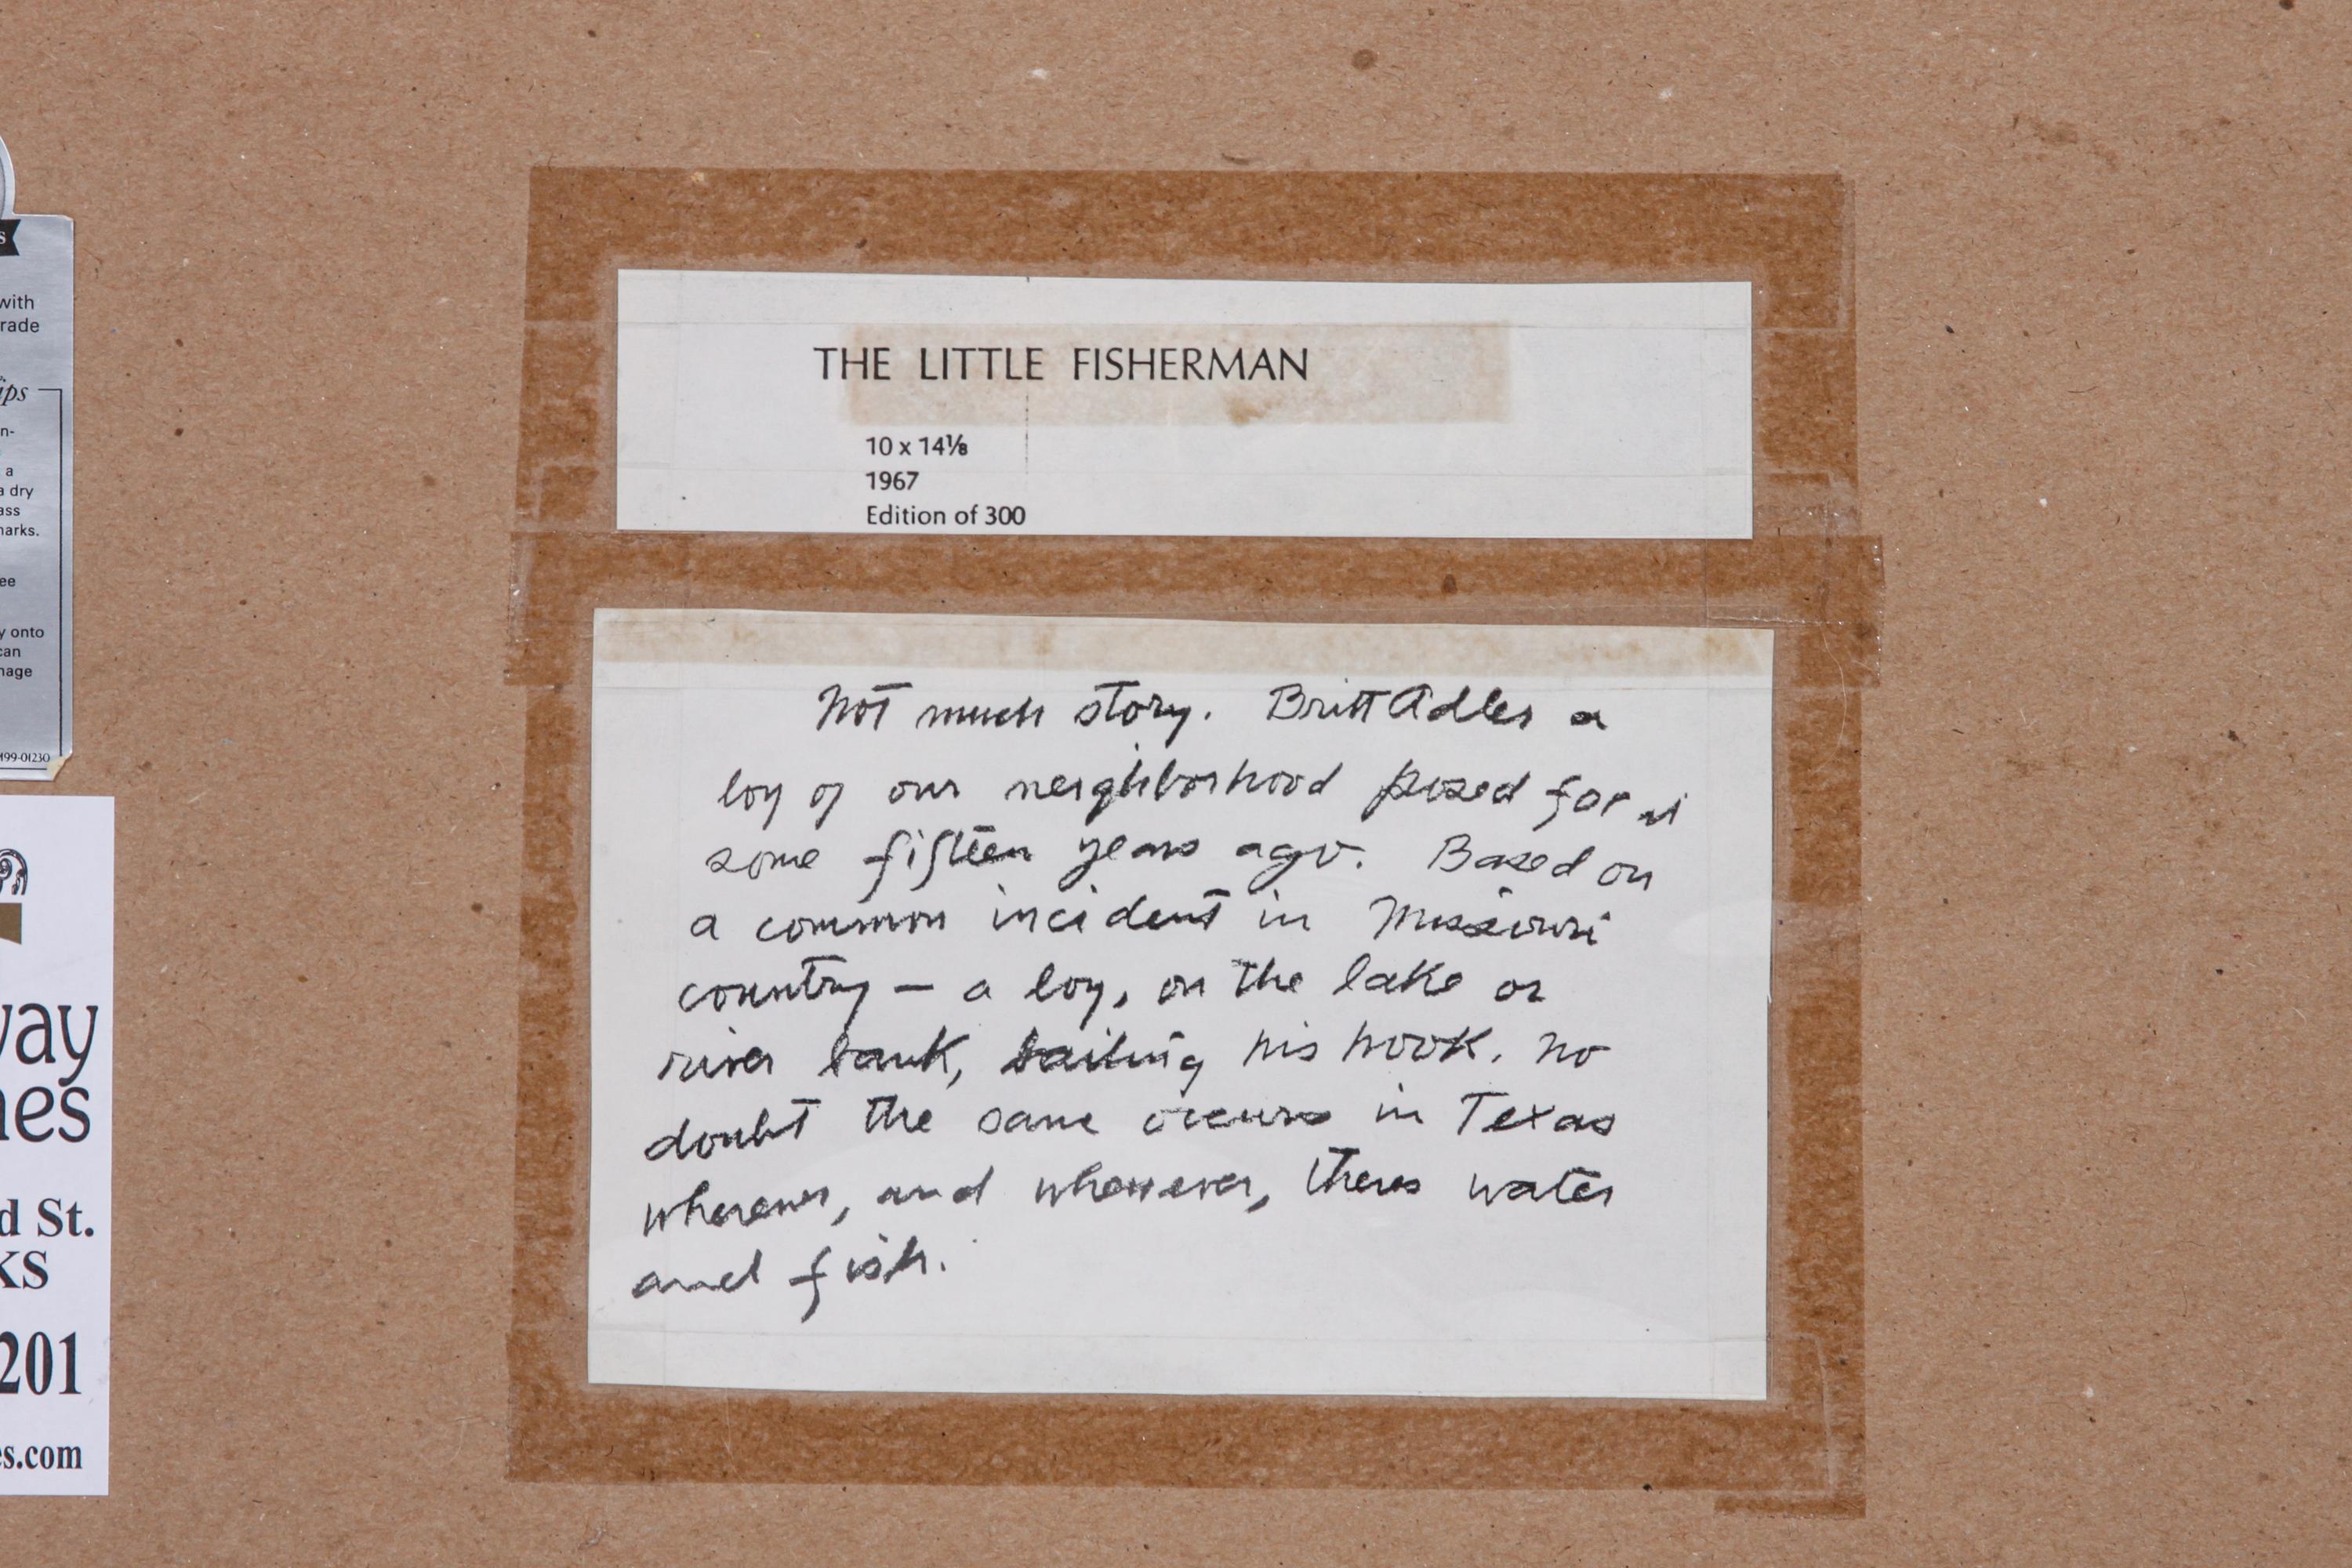 THE LITTLE FISHERMAN
10 x 14⅛
1967
Edition of 300
Not much story. Britt Adler a
boy of our neighborhood posed for it
some fifteen years ago. Based on
a common incident in Missouri
country — a boy, on the lake or
river bank, baiting his hook. No
doubt the same occurs in Texas
wherever, and whenever, theres water
and fish.
S
with
rade
ips
n-
a
a dry
ass
marks.
ee
y onto
can
mage
499-01230
way
nes
d St.
KS
201
es.com